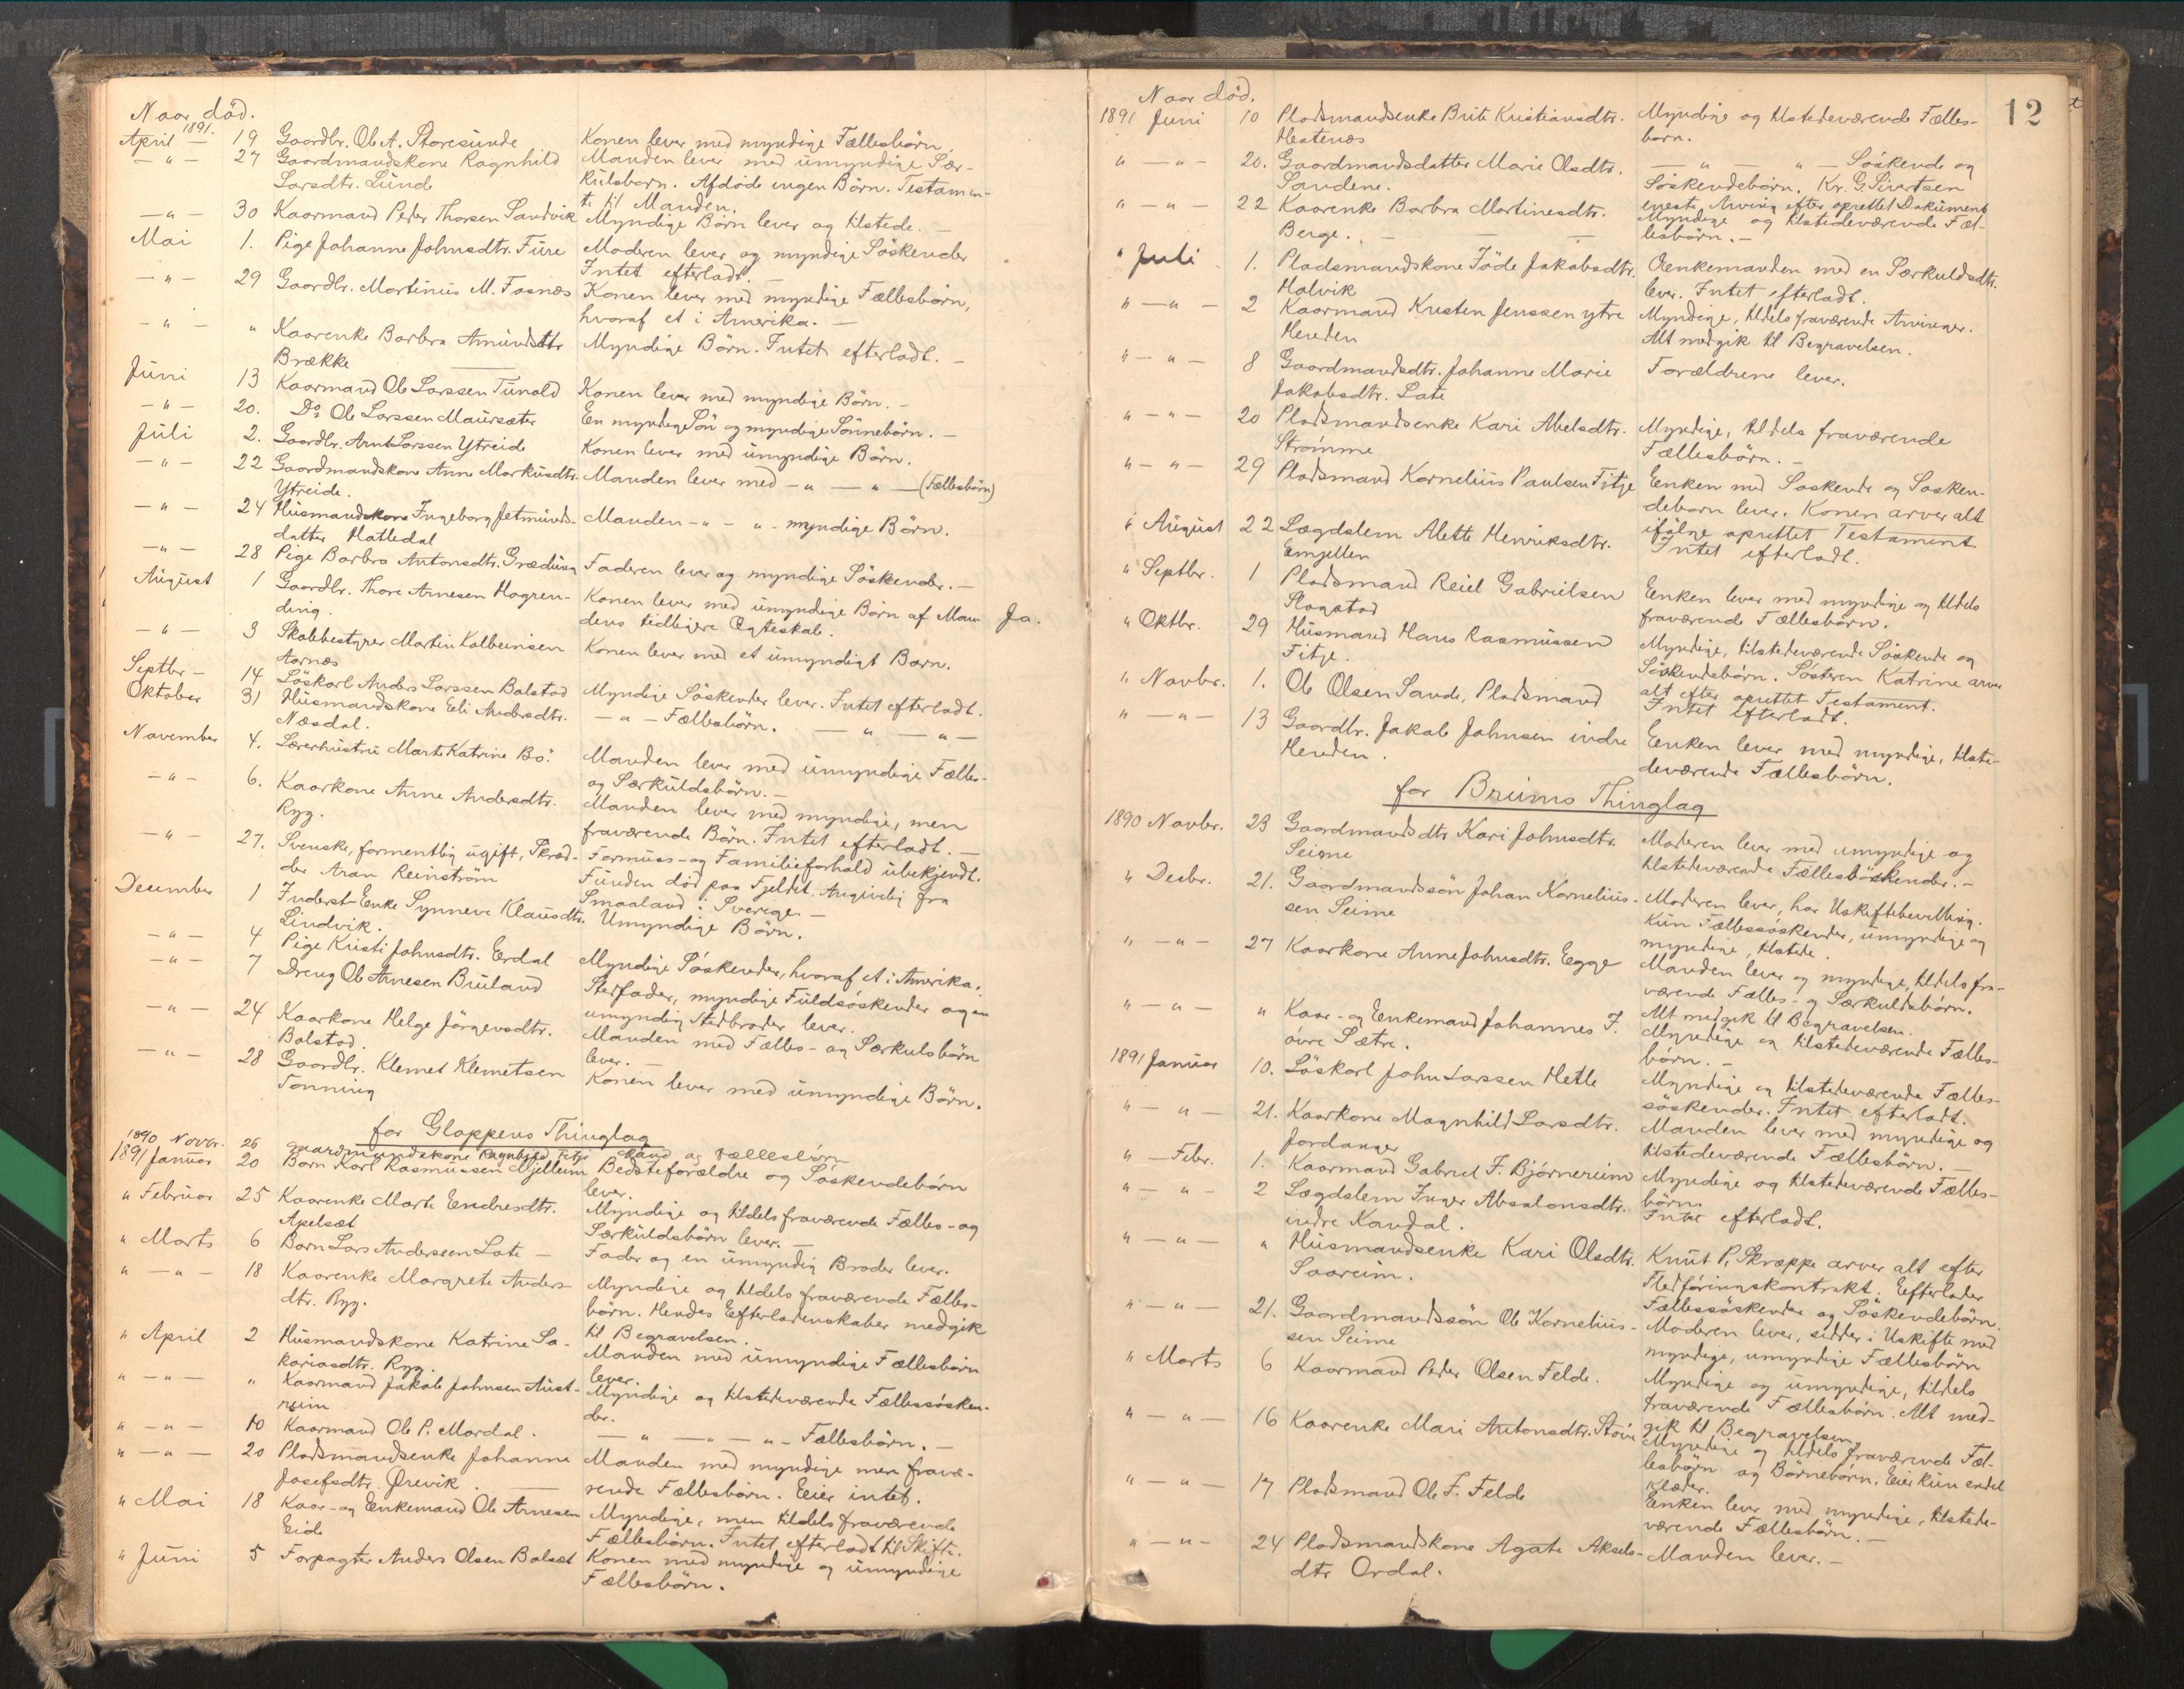 Naar död.
1891.
April — 19 Gaardbr. Ole A. Storesunde Konen lever med myndige Fællesbörn.
— " — 27 Gaardmandskone Ragnhild Manden lever med umyndige Sær-
Larsdtr. Lunde kulsbørn. Afdöde ingen Börn. Testamen-
te til Manden.
— " — 30 Kaarmand Peder Thorsen Sandvik Myndige Börn lever og tilstede. —
Mai 1. Pige Johanne Johnsdtr. Fure Moderen lever og myndige Söskender
Intet efterladt. —
— " — 29 Gaardbr. Martinus M. Fosnæs Konen lever med myndige Fællesbörn,
hvoraf et i Amerika. —
— " — " Kaarenke Barbra Amundsdtr Myndige Börn. Intet efterladt. —
Brække
Juni 13 Kaarmand Ole Larssen Tunold Konen lever med myndige Börn. —
— " — 20. Do Ole Larssen Maursæter En myndig Sön og myndige Sönnebörn. —
Juli 2. Gaardbr. Arnt Larssen Ytreide Konen lever med umyndige Börn.
— " — 22 Gaardmandskone Anne Markusdtr. Manden lever med — " — " — (Fællesbörn)
Ytreide.
— " — 24 Husmandskone Ingeborg Jetmunds- Manden — " — " — myndige Börn.
datter Hatledal
— " — 28 Pige Barbra Antonsdtr. Græding Faderen lever og myndige Söskender. —
August 1 Gaardbr. Thore Arnesen Hogren- Konen lever med umyndige Börn af Man- Ja.
ding. dens tidligere Ægteskab.
— " — 3 Skolebestyrer Martin Kolbeinsen Konen lever med et umyndigt Barn.
Aarnæs
Septbr — 14 Löskarl Anders Larssen Bolstad Myndige Söskender lever. Intet efterladt.
Oktober 31 Husmandskone Eli Andersdtr. — " — Fællesbörn. — " — " —
Næsdal.
November 4. Lærerhustru Marte Katrine Bö. Manden lever med umyndige Fælles-
og Særkuldsbörn. —
— " — 6. Kaarkone Anne Andersdtr. Manden lever med myndige, men
Ryg. fraværende Börn. Intet efterladt. —
— " — 27. Svenske, formentlig ugift, Skræd- Formues- og Familieforhold ubekjendt.
der Aran Reinström Funden död paa Fjeldet. Angivelig fra
Smaaland i Sverige. —
December 1 Inderst-Enke Synneve Klausdtr. Umyndige Börn.
Lindvik.
— " — 4 Pige Kristi Johnsdtr. Erdal Myndige Söskender, hvoraf et i Amerika.
— " — 7 Dreng Ole Arnesen Buland Stedfader, myndige Fuldsöskender og en
umyndig Stedbroder lever.
— " — 24 Kaarkone Helge Jörgensdtr. Manden med Fælles- og Særkulsbörn
Bolstad. lever. —
— " — 28 Gaardbr. Klemet Klemetsen Konen lever med umyndige Börn.
Tonning
for Gloppens Thinglag
1890 Novbr. 26 gaardmandskone Ragnhild Fitje Mand og Fællesbörn
1891 Januar 20 Barn Karl Rasmussen Mjellem Bedsteforældre og Söskendebörn
lever.
" Februar 25 Kaarenke Marte Endresdtr. Myndige og tildels fraværende Fælles- og
Apelsæt Særkuldsbörn lever. —
" Marts 6 Barn Lars Anderssen Late — Fader og en umyndig Broder lever.
" — " — 18 Kaarenke Margrete Anders- Myndige og tildels fraværende Fælles-
dtr. Ryg. börn. Hendes Efterladenskaber medgik
til Begravelsen.
" April 2 Husmandskone Katrine Sa- Manden med umyndige Fællesbörn
kariasdtr. Ryg. lever.
" — " — " Kaarmand Jakob Johnsen Aust- Myndige og tilstedeværende Fællessösken-
rum der.
" — " — 10 Kaarmand Ole P. Mardal. — " — " — " — Fællesbörn. —
" — " — 20 Pladsmandsenke Johanne Manden med myndige men fravæ-
Josefsdtr. Ørevik. rende Fællesbörn. Eier intet.
" Mai 18 Kaar- og Enkemand Ole Arnesen Myndige, men tildels fraværende
Eide Fællesbörn. Intet efterladt til Skifte.
" Juni 5 Forpagter Anders Olsen Bolsæt Konen med myndige og umyndige
Fællesbörn.
12
Naar död.
1891 Juni 10 Pladsmandsenke Brite Kristiansdtr. Myndige og tilstedeværende Fælles-
Hestenæs börn.
" — " — 20. Gaardmandsdatter Marie Olsdtr. — " — " — Söskende og
Sandene. Söskendebörn. Kr. G. Sivertsen
eneste Arving efter oprettet Dokument
" — " — 22 Kaarenke Barbra Martinesdtr. Myndige og tilstedeværende Fæl-
Berge. — lesbörn. —
" Juli 1. Pladsmandskone Jöde Jakobsdtr. Ænkemanden med en Særkuldsdtr.
Holvik lever. Intet efterladt.
" — " — 2 Kaarmand Kristen Jenssen ytre Myndige, tildels fraværende Arvinger.
Henden Alt medgik til Begravelsen.
" — " — 8 Gaardmandsdtr. Johanne Marie Forældrene lever.
Jakobsdtr. Late
" — " — 20 Pladsmandsenke Kari Abelsdtr. Myndige, tildels fraværende
Strømme Fællesbörn. —
" — " — 29 Pladsmand Kornelius Paulsen Fitje Enken med Søskende og Søsken-
debørn lever. Konen arver alt
ifölge oprettet Testament
" August 22 Lægdslem Alette Henriksdtr. Intet efterladt.
Emjellen
" Septbr. 1 Pladsmand Reiel Gabrielsen Enken lever med myndige og tildels
Slogstad fraværende Fællesbörn.
" Oktbr. 29 Husmand Hans Rasmussen Myndige, tilstedeværende Söskende og
Fitje. Söskendebörn. Søsteren Katrine arver
alt efter oprettet Testament.
" Novbr. 1. Ole Olsen Sande, Pladsmand Intet efterladt.
" — " — 13 Gaardbr. Jakob Johnsen indre Enken lever med myndige, tilste-
Henden. deværende Fællesbörn.
for Breims Thinglag
1890 Novbr. 23 Gaardmandsdtr Kari Johnsdtr. Moderen lever med umyndige og
Seime tilstedeværende Fællesböskender. —
" Decbr. 21. Gaardmandssön Johan Kornelius- Moderen lever, har Uskiftebevilling.
sen Seime Kun Fællessöskender, umyndige og
myndige, tilstede.
" — " — 27 Kaarkone Anne Johnsdtr. Egge Manden lever og myndige, tildels fra-
værende Fælles- og Særkuldsbörn.
Alt medgik til Begravelsen.
" — " — " Kaar- og Enkemand Johannes J. Myndige og tilstedeværende Fælles-
övre Sætre. börn. —
1891 Januar 10. Löskarl John Larssen Hetle Myndige og tilstedeværende Fælles-
söskender. Intet efterladt.
" — " — 21. Kaarkone Magnhild Larsdtr. Manden lever med myndige og
Fordanger tilstedeværende Fællesbörn. —
" — Febr. 1. Kaarmand Gabriel F. Bjørnereim Myndige og tilstedeværende Fælles-
börn
" — " — 2 Lægdslem Inger Absalonsdtr. Intet efterladt.
indre Kandal.
" — " — " Husmandsenke Kari Olsdtr. Knut P. Skrøppe arver alt efter
Saareim. Fledföringskontrakt. Efterlader
Fællessöskender og Söskendebörn.
" — " — 21. Gaardmandssön Ole Kornelius- Moderen lever, sidder i Uskifte med
sen Seime myndige, umyndige Fællesbörn
" Marts 6 Kaarmand Peder Olsen Felde. Myndige og umyndige, tildels
fraværende Fællesbörn. Alt med-
gik til Begravelsen
" — " — 16 Kaarenke Mari Antonsdtr. Støve Myndige og tildels fraværende Fæl-
lesbörn og Börnebörn. Eier kun endel
Klæder.
" — " — 17 Pladsmand Ole J. Felde Enken lever med myndige, tilstede-
værende Fællesbörn. —
" — " — 24 Pladsmandskone Agate Aksels- Manden lever. —
dtr Ordal.